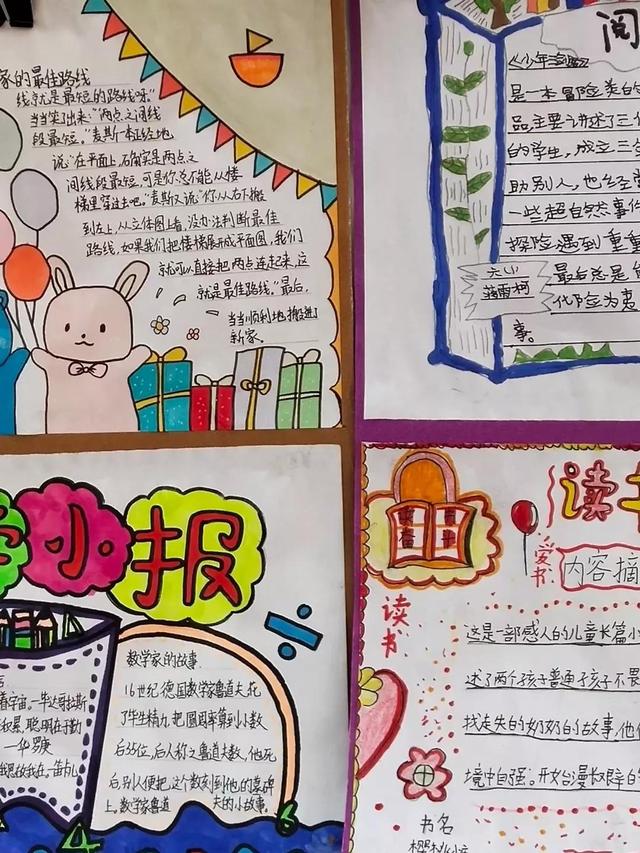 家的最佳路线
线就是最短的路线呀"
当当笑出来:"两点之间线
段最短。"麦斯一本正经地
说:"在平面上,石角实是两点之
间线段最短,可是你总不能从楼
梯里穿过去吧。"麦斯又说"你从右下搬
到左上,从立体图上看,没办法判断最佳
路线,如果我们把楼梯展成平面图,我们
就可以直接把两点连起来,这
就是最佳路线。"最后,
当当顺利地搬进了
新家。
阅
《少年
是一本冒险类的
品,主要讲述了三位
的学生,成立三
助别人,也经常
一些超自然事件
探险,遇到重重
最后总是
化险为夷
事。
六(4)
薛雨柯
学小报
宇宙。毕达哥拉斯
积累,聪明在于勤
一华罗庚
故我在。笛卡儿
数学家的故事.
16世纪德国数学家鲁道夫,花
了毕生精力,把圆周率算到小数
后35位,后人称之鲁道夫数,他死
后,别人便把这个数刻到他的墓碑
上。数学家鲁道夫的小故事。
读书
爱书
内容摘
读书
这是一部感人的儿童长篇小
述了两个孩子普通孩子不畏
找走失的奶奶的故事,他们
境中自强。开始漫长艰辛的
书名